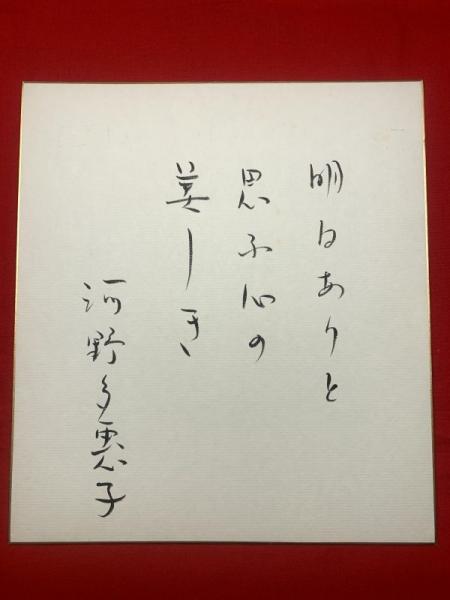 明日ありと
思ふ心の
美しき
河野多惠子